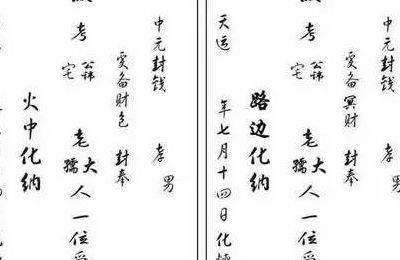 中元封钱 孝男
爰备冥财 封奉
考 公讳 宅 老大孺人一位受
路边化纳
天运 年七月十四日化
中元封钱 孝男
爰备财包 封奉
考 公讳 宅 老大孺人一位受
火中化纳